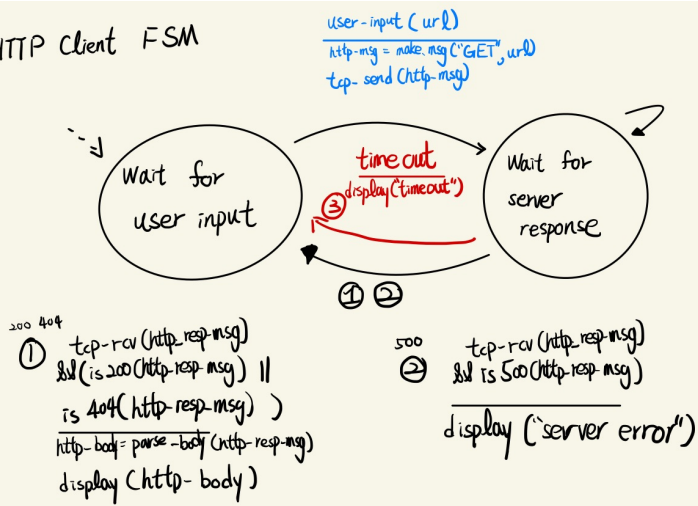 HTTP Client FSM
user-input (url)
http-msg = make_msg ("GET", url)
tcp-send (http-msg)
Wait for
user input
time out
display("timeout")
③
Wait for
server
response
① ②
200 404
① tcp-rcv (http_resp-msg)
&& (is 200 (http-resp-msg) ||
is 404 (http-resp-msg) )
http-body = parse-body (http-resp-msg)
display (http-body)
500
② tcp-rcv (http_resp-msg)
&& is 500 (http-resp-msg)
display ("server error")